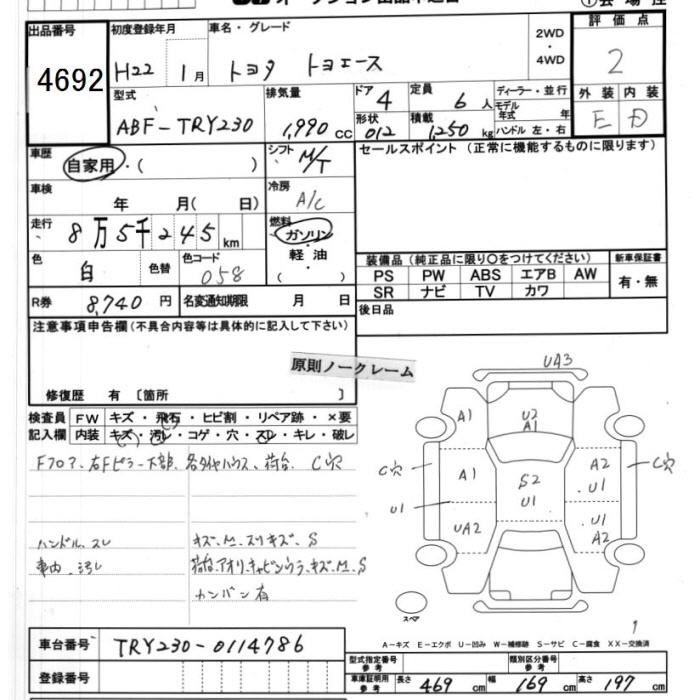 出品番号
4692
初度登録年月
H22 1月
車名・グレード
トヨタ トヨエース
2WD
・
4WD
評価点
2
外装 内装
E D
型式
ABF-TRY230
排気量
1,990 cc
ドア 4
形状 012
定員 6 人
積載 1,250 kg
ディーラー・並行
モデル年式 年
ハンドル 左・右
車歴
自家用・( )
シフト M/T
セールスポイント (正常に機能するものに限ります)
車検
年 月( 日)
冷房 A/C
走行
8万5千245 km
燃料
ガソリン
軽油
( ・ )
色
白 色替
色コード
058
R券 8,740 円
名変通知期限 月 日
装備品 (純正品に限り〇をつけてください)
PS PW ABS エアB AW
SR ナビ TV カワ
新車保証書
有・無
後日品
注意事項申告欄(不具合内容等は具体的に記入して下さい)
原則ノークレーム
修復歴 有 〔箇所 〕
検査員記入欄
FW キズ・飛石・ヒビ割・リペア跡・×要
内装 キズ・汚レ・コゲ・穴・スレ・キレ・破レ
Fフロア、右Fピラー下部、各タイヤハウス、荷台、C穴
ハンドル、スレ
キズ、M、スリキズ、S
車内、汚レ
荷台、アオリ、キャビンウラ、キズ、M、S
カンバン有
UA3
A1
U2
A1
C穴
A1
S2
U1
A2
U1
C穴
U1
UA2
U1
A2
スペア
A-キズ E-エクボ U-凹み W-補修跡 S-サビ C-腐食 XX-交換済
車台番号
TRY230-0114786
登録番号
型式指定番号
参考
類別区分番号
参考
車庫証明用
参考
長さ 469 cm 幅 169 cm 高さ 197 cm